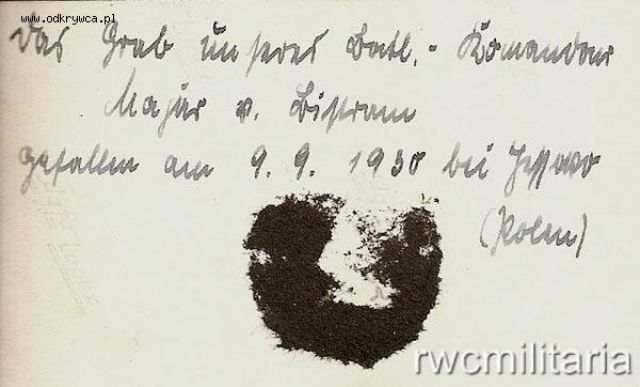 www.odkrywca.pl
Das Grab unseres Batl.- Komandeur
Major v. Bistram
gefallen am 9. 9. 1939 bei
(Polen)
rwcmilitaria